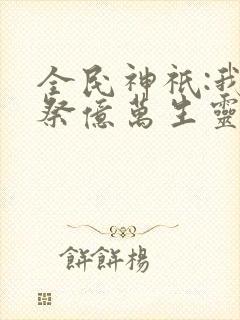 全民神祇:我
祭億萬生靈
餅餅楊